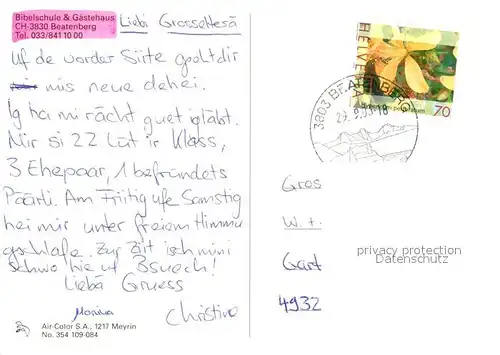 Bibelschule & Gästehaus
CH-3830 Beatenberg
Tel. 033/841 10 00
Liebi Grosseltesä
Uf de vorder Siite gseht dir
mis neue dehei.
Ig ha mi rächt guet igläbt.
Mir si 22 Lüt ir Klass,
3 Ehepaar, 1 befründets
Päärli. Am Friitig ufe Samstig
hei mir unter freiem Himmu
gschlafe. Zur Ziit isch mini
Schwö hie uf Bsuech!
Liebä Gruess
Monika
Christine
Air-Color S.A., 1217 Meyrin
No. 354 109-084
HELVETIA
70
3803 BEATENBERG
Gros
W. t.
Gart
4932
privacy protection
Datenschutz